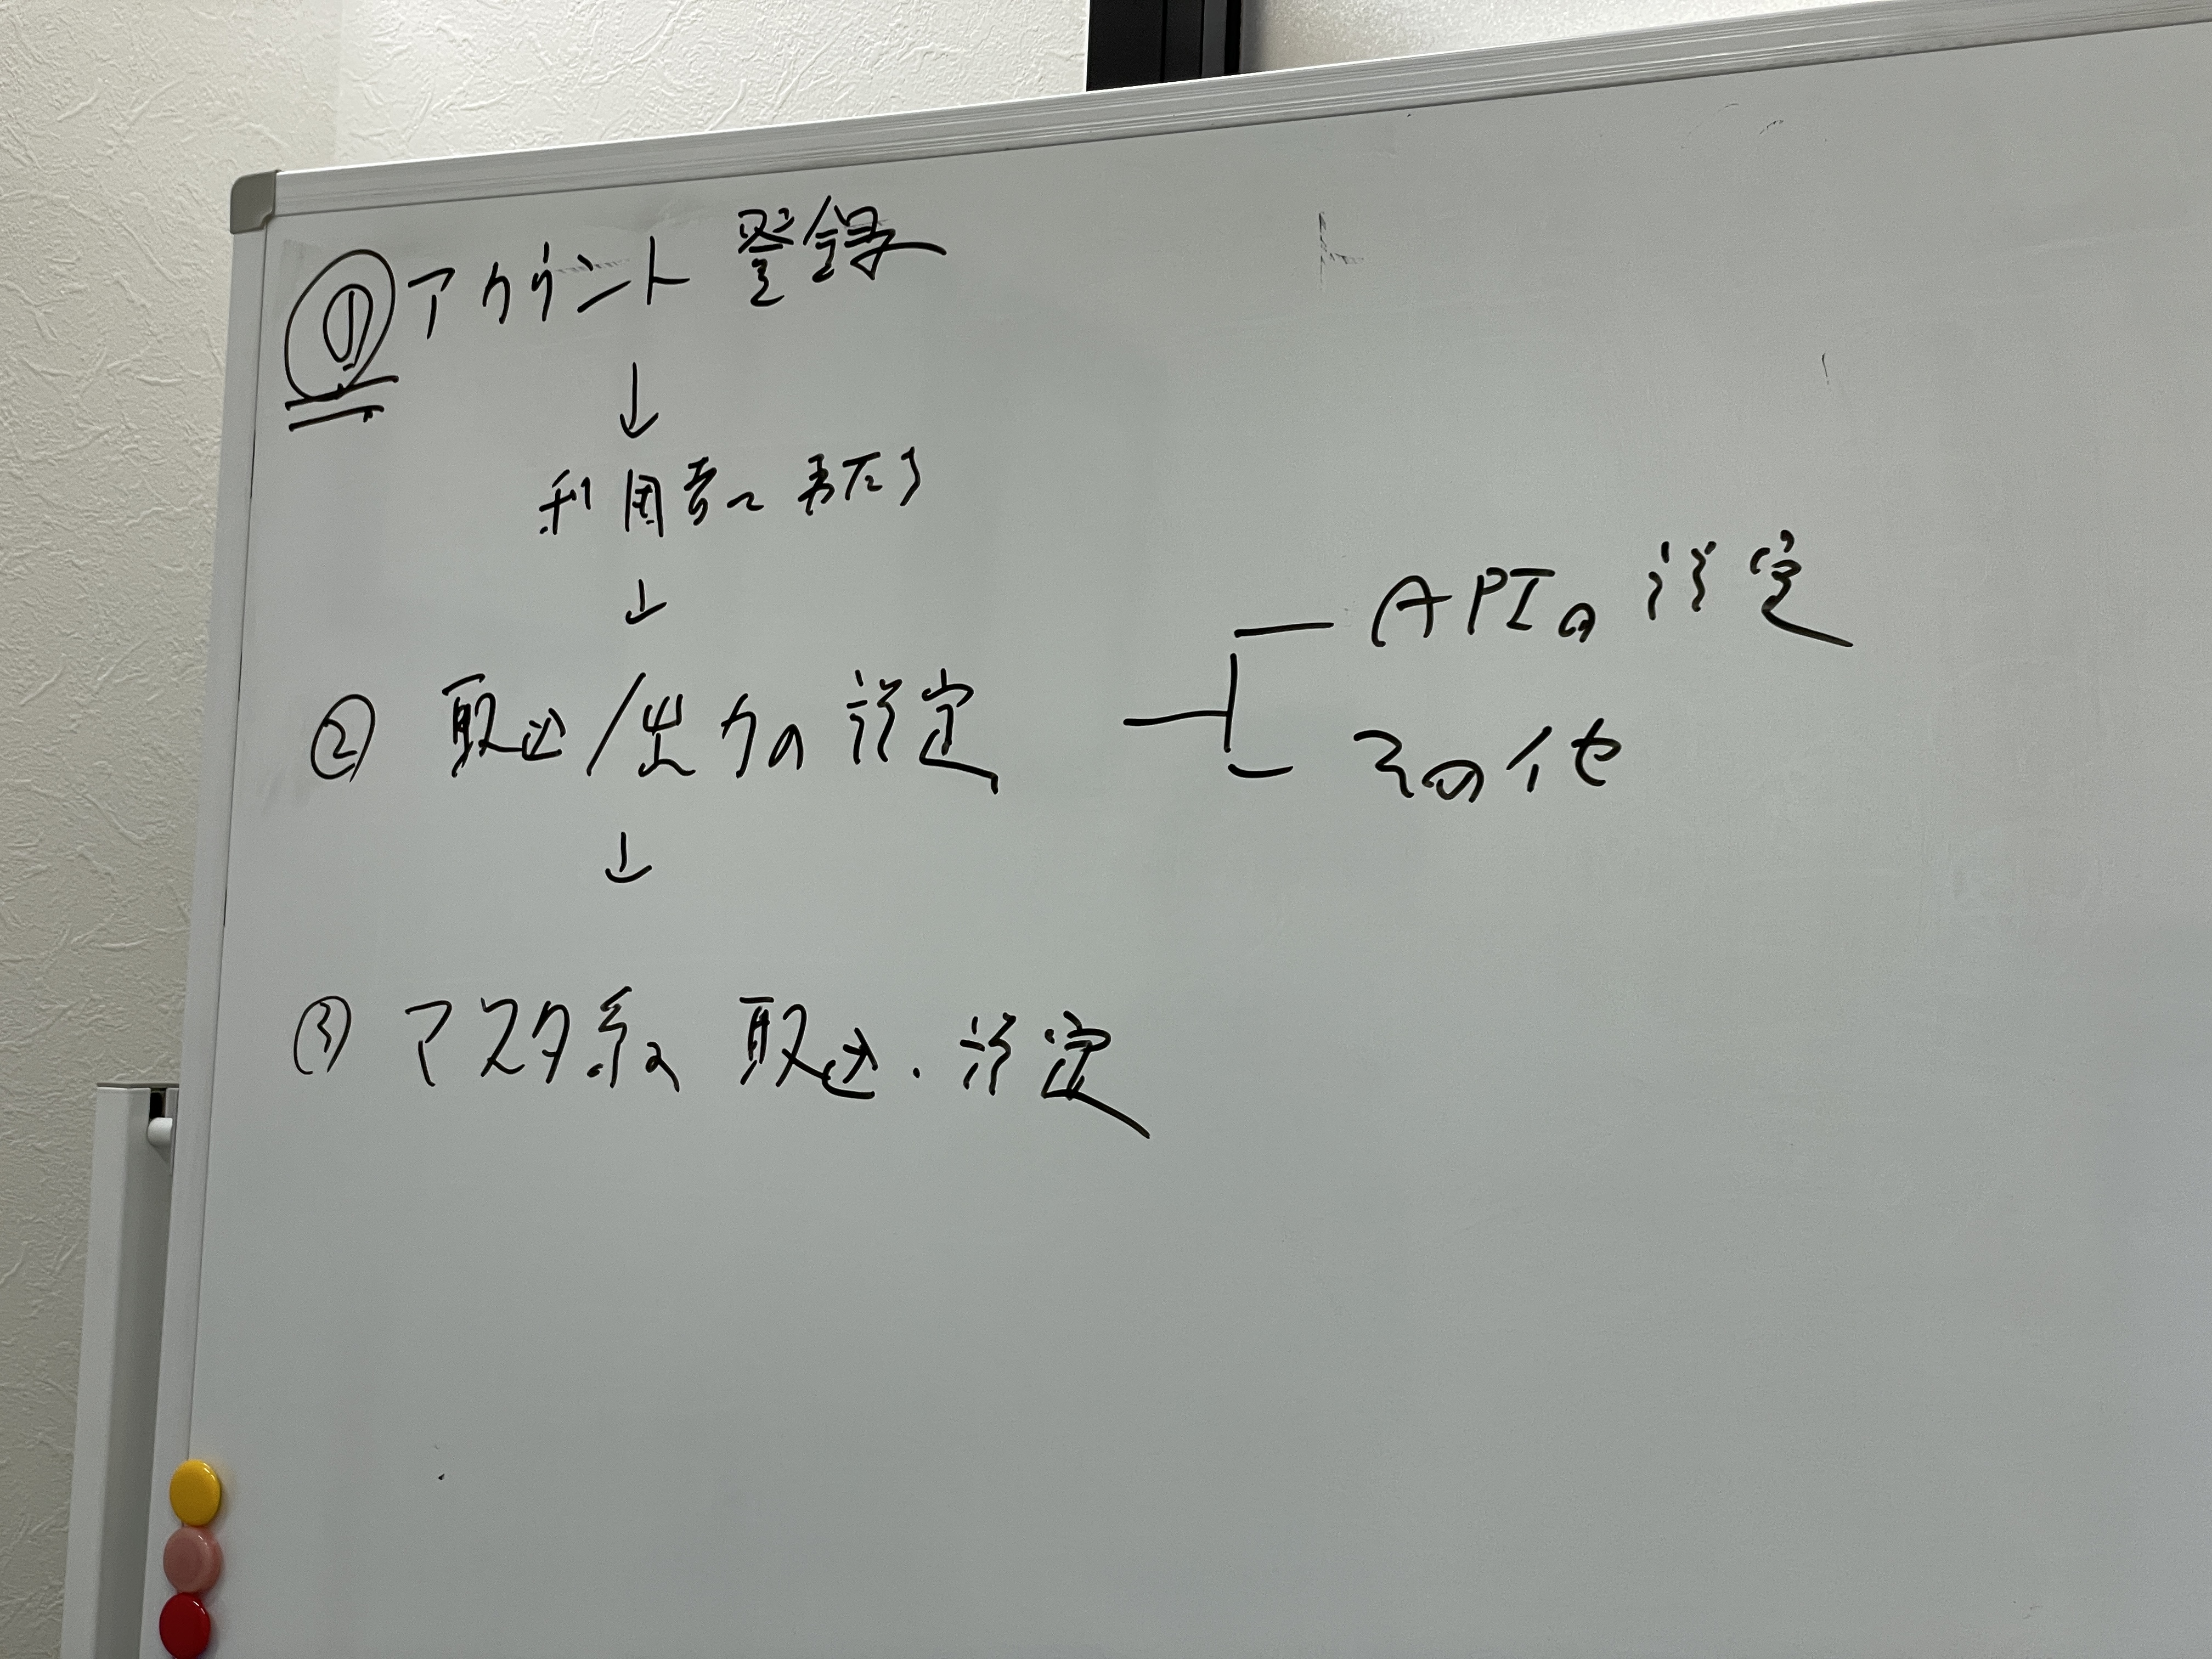 ① アカウント登録
↓
利用者へ
↓
② 取込/出力の設定
APIの設定
その他
↓
③ マスタ系の取込・設定